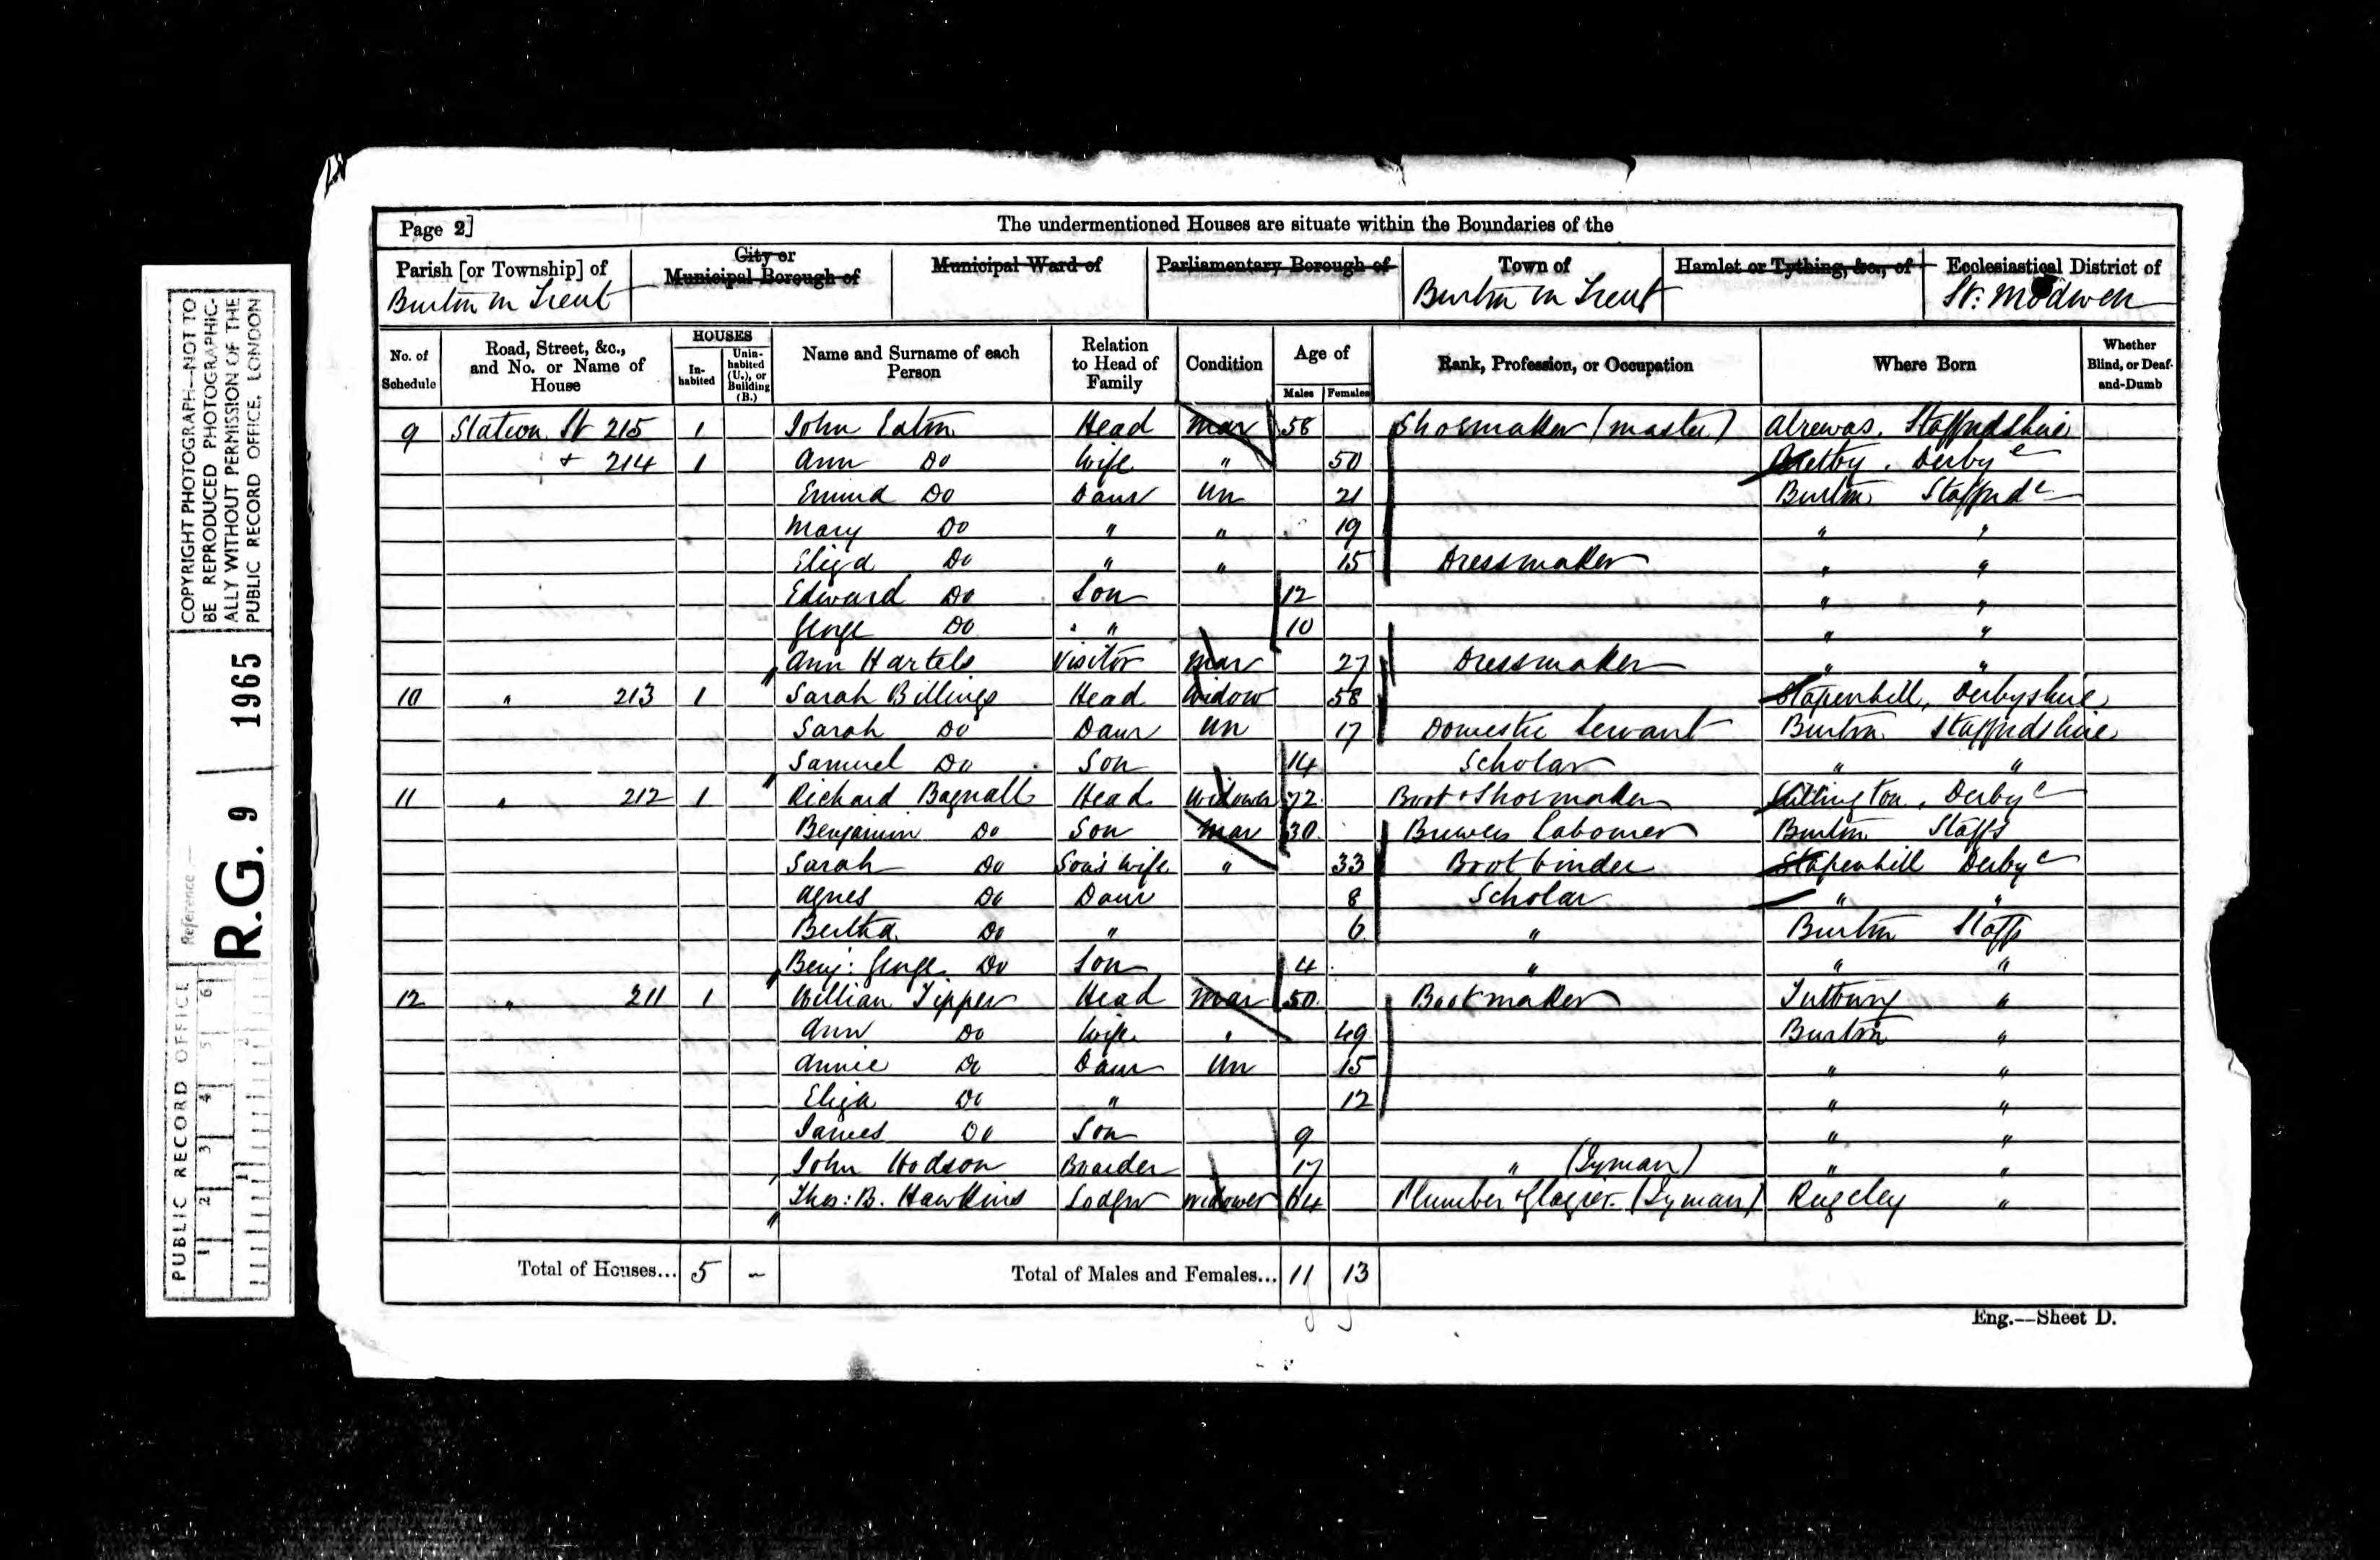 Page 2] The undermentioned Houses are situate within the Boundaries of the
Parish [or Township] of City or Municipal Borough of Municipal Ward of Parliamentary Borough of Town of Hamlet or Tything, &c., of Ecclesiastical District of
Burton on Trent Burton on Trent St: Modwen
No. of Schedule Road, Street, &c., and No. or Name of House HOUSES Inhabited Uninhabited (U.), or Building (B.) Name and Surname of each Person Relation to Head of Family Condition Age of Males Females Rank, Profession, or Occupation Where Born Whether Blind, or Deaf-and-Dumb
9 Station St 215 1 John Eaton Head Mar 58 Shoemaker (master) Alrewas, Staffordshire
+ 214 1 Ann Do Wife " 50 Bretby, Derby
Do Daur Un 21 Burton Stafford
Mary Do " " 19 " "
Eliza Do " " 15 Dressmaker " "
Edward Do Son 12 " "
George Do " 10 " "
Ann Visitor Mar 27 Dressmaker " "
10 " 213 1 Sarah Billings Head Widow 58 Stapenhill, Derbyshire
Sarah Do Daur Un 17 Domestic Servant Burton Staffordshire
Samuel Do Son 14 Scholar " "
11 " 212 1 Richard Bagnall Head Widower 72 Boot & Shoemaker Derby
Benjamin Do Son Mar 30 Brewers Labourer Burton Staffs
Sarah Do Son's Wife " 33 Bootbinder Stapenhill Derby
Agnes Do Daur 8 Scholar " "
Bertha Do " 6 " Burton Staffs
Benj: George Do Son 4 " " "
12 " 211 1 William Tipper Head Mar 50 Bootmaker Tutbury "
Ann Do Wife " 49 Burton "
Annie Do Daur Un 15 " "
Eliza Do " 12 " "
James Do Son 9 " "
John Hodson Boarder 17 " (Jyman) " "
Thos: B. Hawkins Lodger Widower 64 Plumber & Glazier (Jyman) Rugeley "
Total of Houses... 5 – Total of Males and Females... 11 13
Eng.—Sheet D.
PUBLIC RECORD OFFICE
1 2 3 4 5 6
1 2
Reference:—
R.G. 9 / 1965
COPYRIGHT PHOTOGRAPH—NOT TO
BE REPRODUCED PHOTOGRAPHIC-
ALLY WITHOUT PERMISSION OF THE
PUBLIC RECORD OFFICE, LONDON